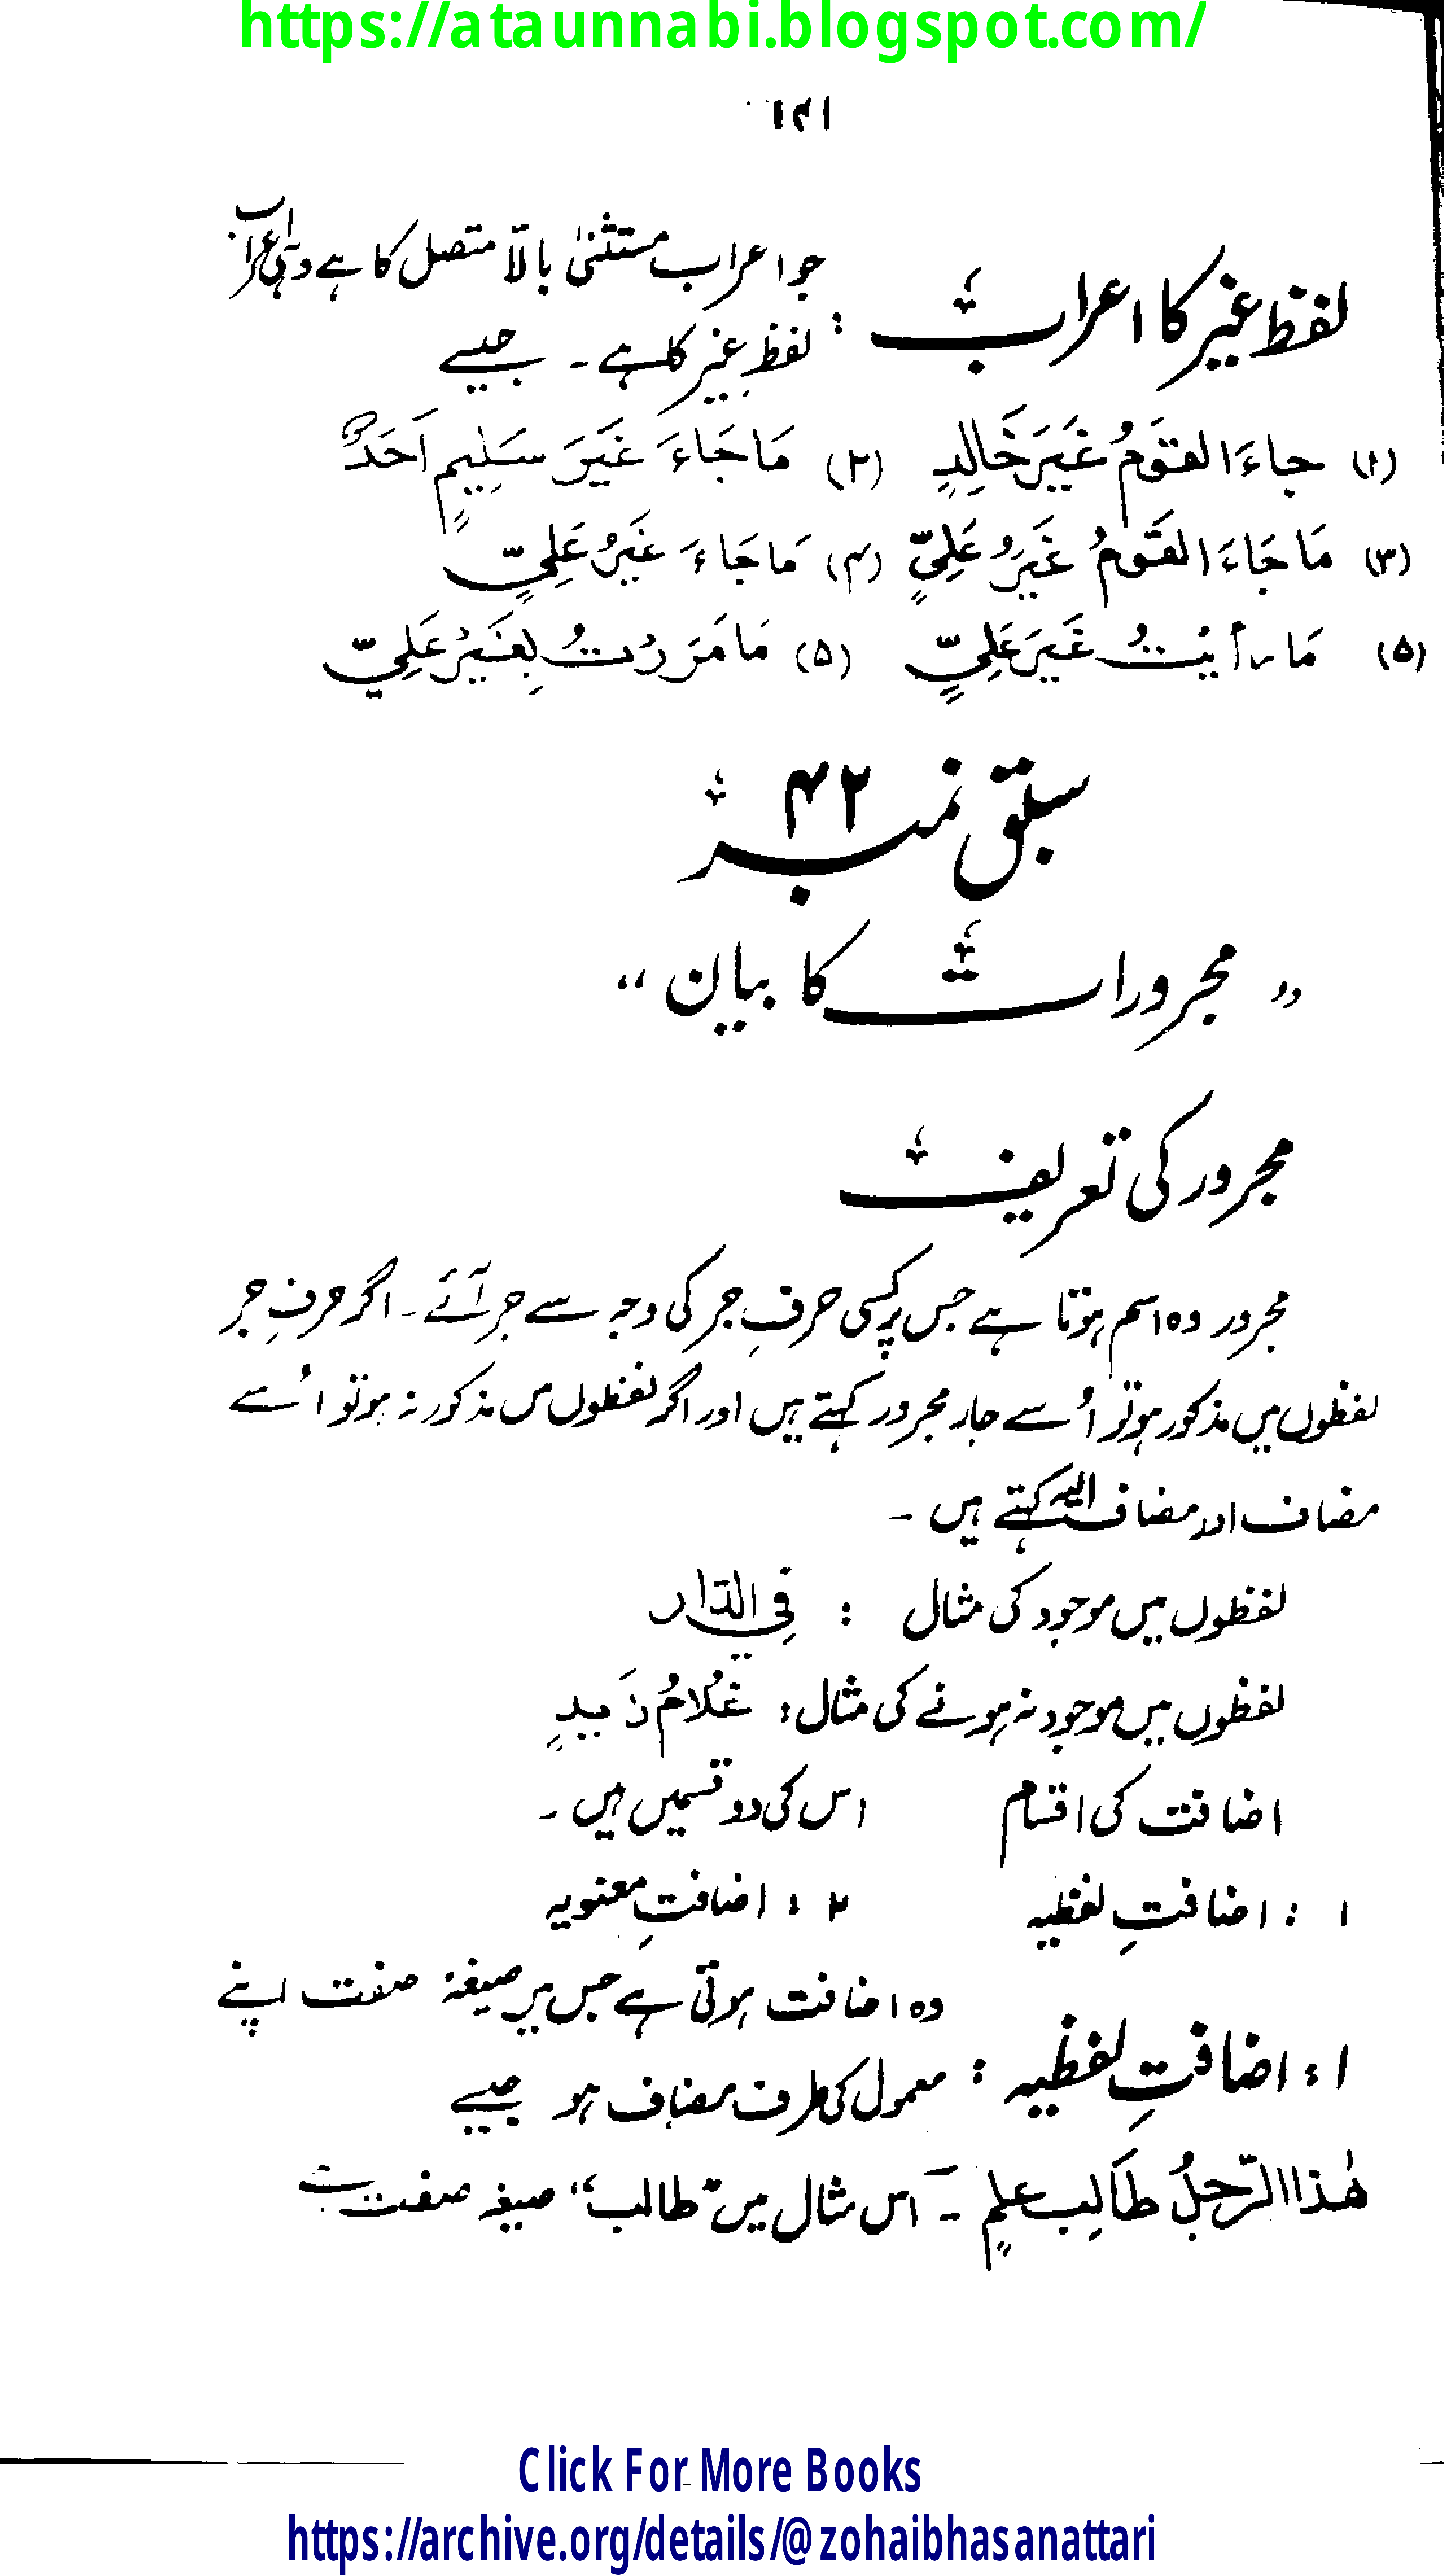 https://ataunnabi.blogspot.com/
۱۴۱
لفظ غیر کا اعراب : جو اعراب مستثنیٰ بالّا متصل کا ہے وہی اعراب
لفظِ غیر کا ہے ۔ جیسے
(۱) جاءَ القَومُ غَیَرَ خَالِدٍ (۲) مَا جَاءَ غَیَرَ سَلِیمٍ اَحَدٌ
(۳) مَا جَاءَ القَومُ غَیَرُ عَلِیٍّ (۴) مَا جَاءَ غَیَرُ عَلِیٍّ
(۵) مَا رأیتُ غَیَرَ عَلِیٍّ (۵) مَا مَرَرتُ بِغَیرِ عَلِیٍّ
سبق نمبر ۴۲
" مجرورات کا بیان "
مجرور کی تعریف
مجرور وہ اسم ہوتا ہے جس پر کسی حرفِ جر کی وجہ سے جر آئے ۔ اگر حرفِ جر
لفظوں میں مذکور ہو تو اُسے جار مجرور کہتے ہیں اور اگر لفظوں میں مذکور نہ ہو تو اُسے
مضاف اور مضاف الیہ کہتے ہیں ۔
لفظوں میں موجود کی مثال : فِی الدّار
لفظوں میں موجود نہ ہونے کی مثال : غُلَامُ زَیدٍ
اضافت کی اقسام اس کی دو قسمیں ہیں ۔
۱ : اضافتِ لفظیہ ۲ : اضافتِ معنویہ
۱ : اضافتِ لفظیہ : وہ اضافت ہوتی ہے جس میں صیغۂ صفت اپنے
معمول کی طرف مضاف ہو جیسے
ھٰذا الرّجلُ طَالِبِ علمٍ ۔ اس مثال میں "طالب" صیغہ صفت ہے
Click For More Books
https://archive.org/details/@zohaibhasanattari